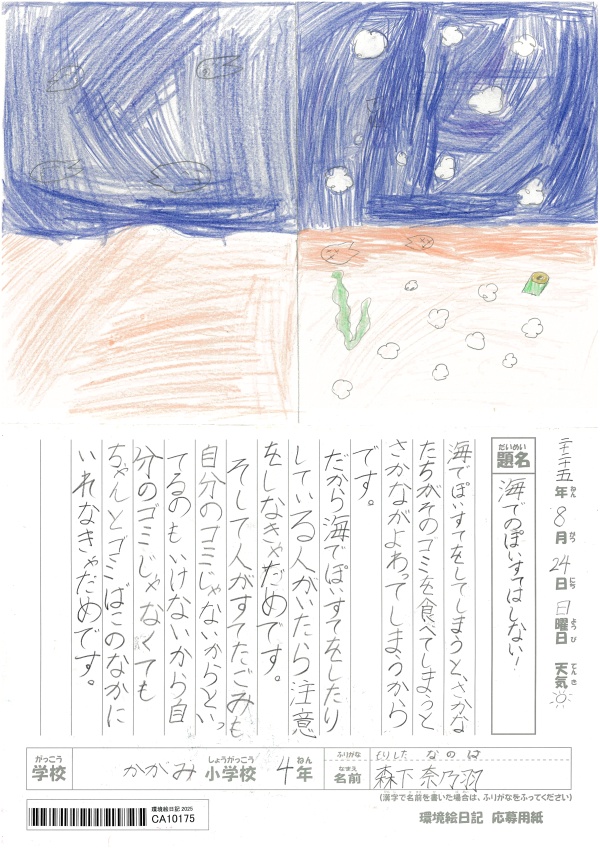 二千二十五年ねん8月がつ24日にち日曜日ようび天気てんき
題名だいめい
海でのぽいすてはしない!
海でぽいすてをしてしまうと、さかな
たちがそのゴミを食べてしまうと
さかながよわってしまうから
です。
だから海でぽいすてをしたり
している人がいたら注意
をしなきゃだめです。
そして人がすてたごみも
自分のゴミじゃないからといっ
てるのもいけないから自
分のゴミじゃなくても
ちゃんとゴミばこのなかに
いれなきゃだめです。
がっこう 学校 かかみ しょうがっこう 小学校 4年ねん
ふりがな もりした なのは
なまえ 名前 森下 奈乃羽
(漢字で名前を書いた場合は、ふりがなをふってください)
環境絵日記 2025
CA10175
環境絵日記 応募用紙